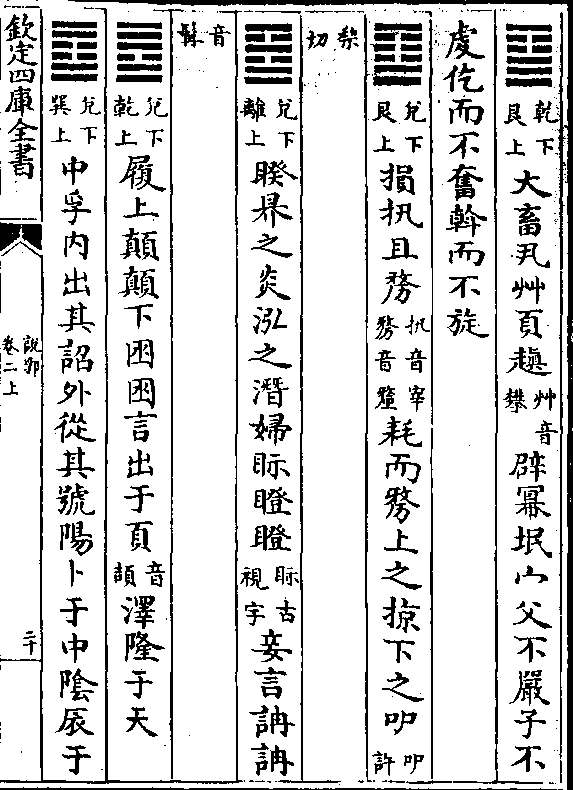 乾下艮上 大畜 乳艸頁䞿 艸音攀 辟冪垊宀父不嚴子不
虔仡而不奮斡而不旋
兌下艮上 損 扟且務 扟音宰務音 耗而務上之掠下之叩 叩許
梨切
兌下離上 睽 暴之炎泓之潛婦眎瞪瞪 眎古視字 妾言訥訥
音髯
兌下乾上 履 上顛顛下困困言出于頁 音頡 澤隆于天
兌下巽上 中孚 內出其詔外從其號陽卜于中陰辰于
欽定四庫全書
說郛
卷二上
二十